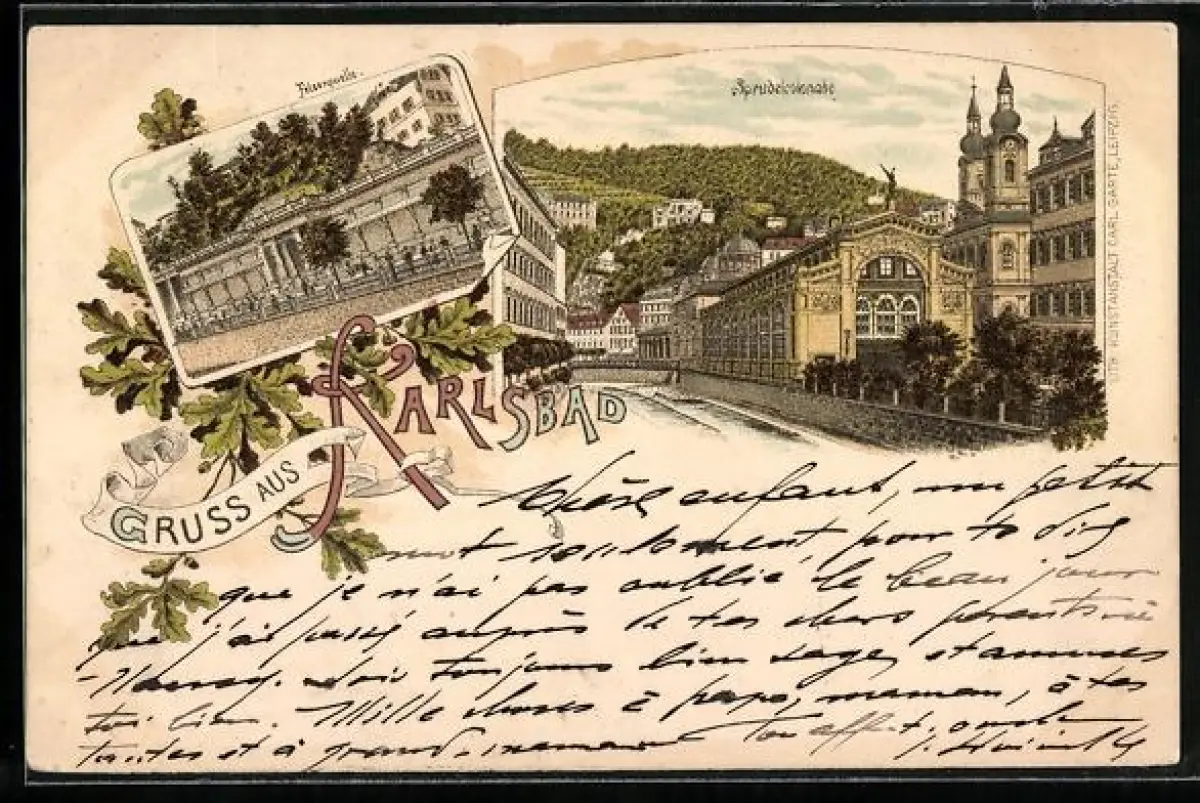 Felsenquelle.
Sprudelcolonade
LITH. KUNSTANSTALT CARL GARTE, LEIPZIG.
GRUSS AUS
KARLSBAD
Chère enfant, un petit
mot seulement pour te dire
que je n'ai pas oublié le beau jour
que j'ai passé auprès de tes chers parents
Nancy. Sois toujours bien sage, et amuses
toi bien. Mille choses à papa, maman, à tes
tantes et à grand-maman Ton affect. oncle